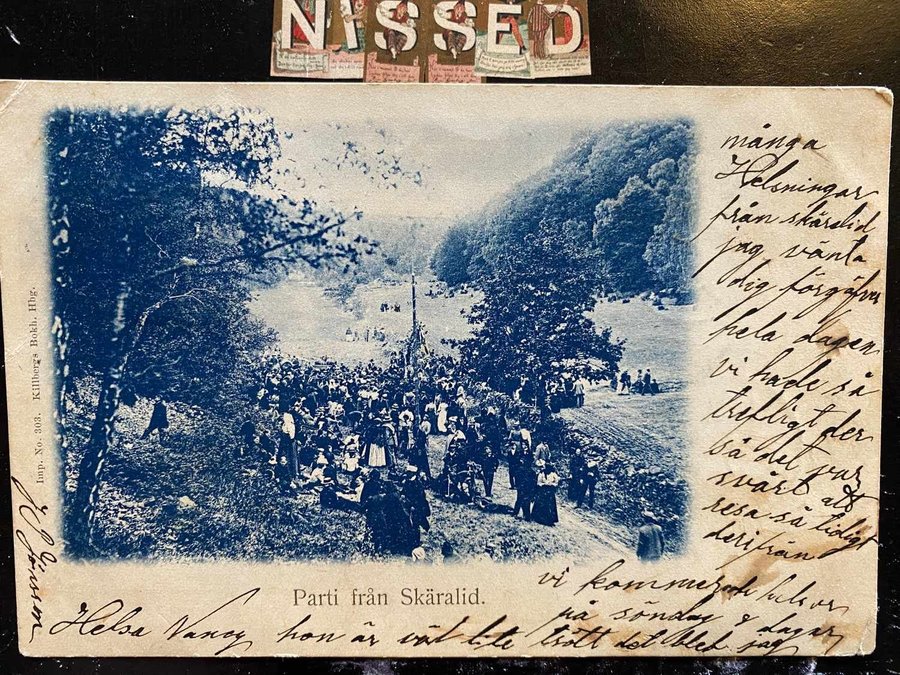 NISSED
Imp. No. 303. Killbergs Bokh. Hbg.
många
Helsningar
från skäralid
jag vänta
dig förgäfves
hela dagen
vi hade så
trefligt der
så det var
svårt att
resa så tidigt
derifrån
vi kommer
på söndag 8 dagar
Parti från Skäralid.
Helsa Nancy hon är väl lite trött det blef jag